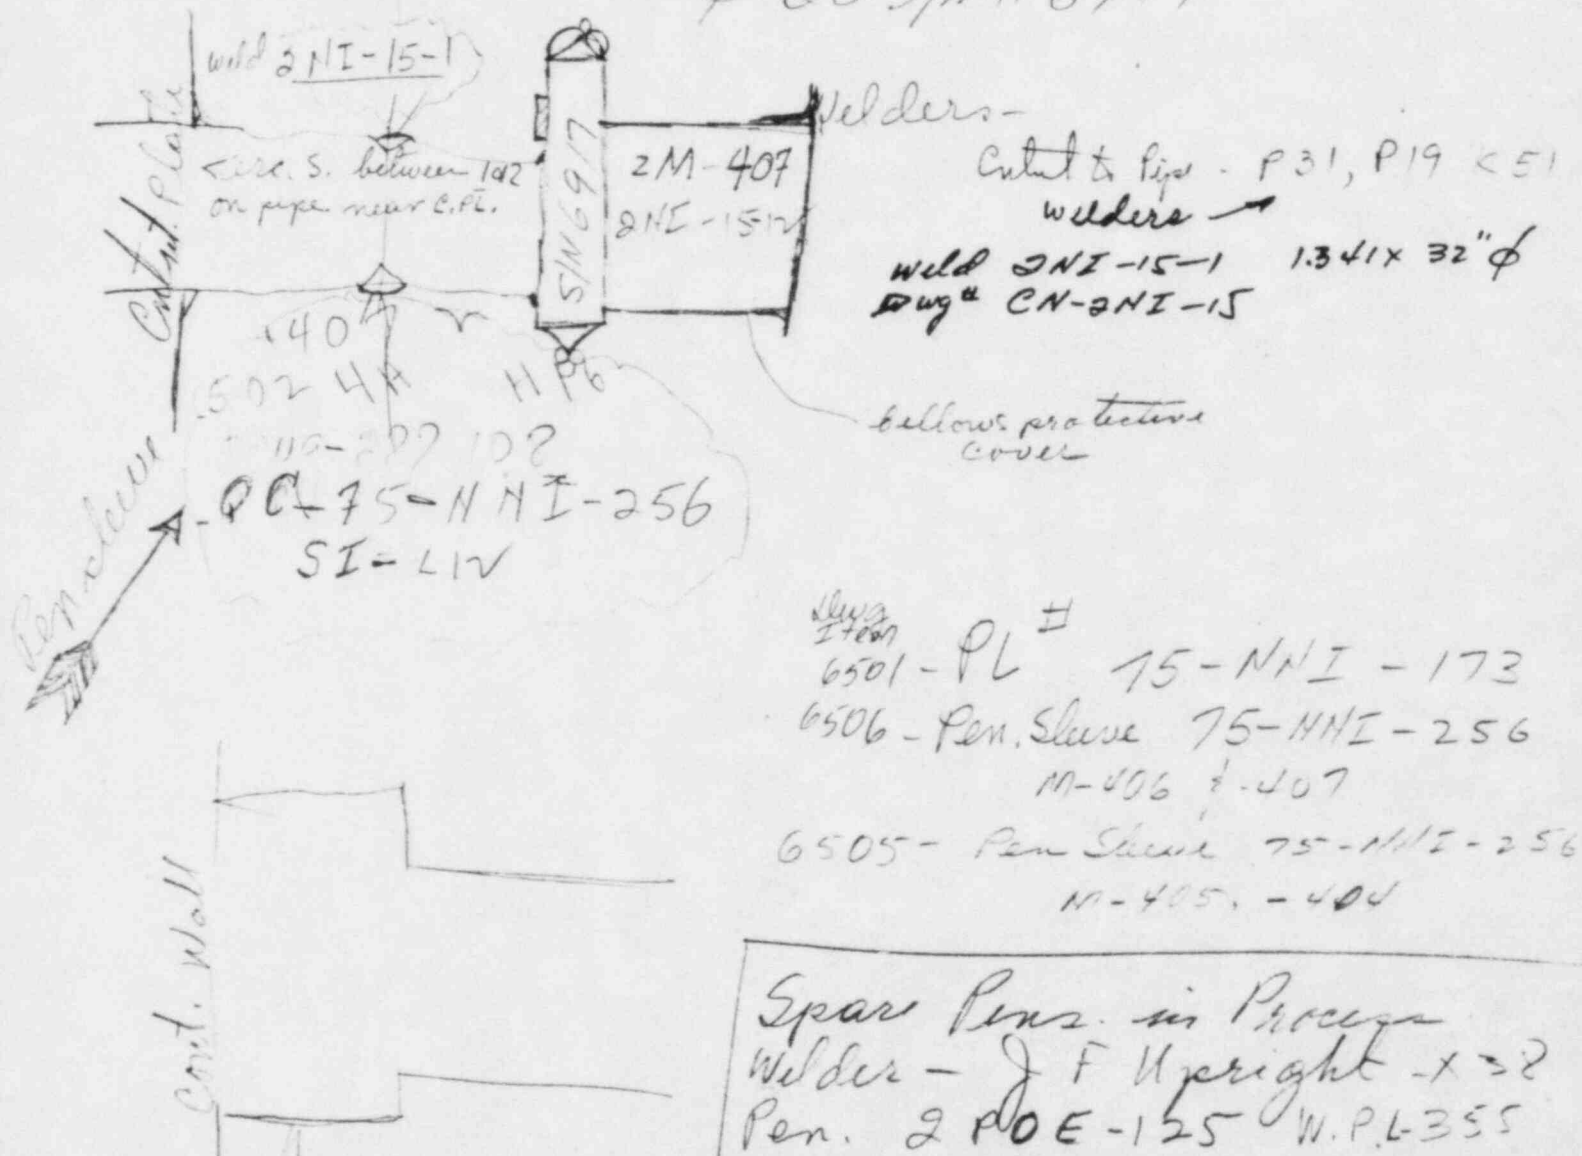 weld 2NI-15-1
Welders-
Cntnt. Plate
circ. S. between 1&2
on pipe near C.PL.
S/N 6917
2M-407
2NI-15-12
P31, P19
welders
weld 2NI-15-1 1.341 x 32"φ
Dwg# CN-2NI-15
bellows protective
cover
.40
.502 4A
QC-75-NNI-256
Pen sleeve
Dwg
Item
6501 - PL # 75-NNI-173
6506 - Pen. Sleeve 75-NNI-256
M-406 & -407
6505 - Pen Sleeve 75-NNI-256
M-405, -404
Cont. Wall
Spare Pens. in Process
Welder - J F Upright -
Pen. 2 POE-125 W.P.L-355